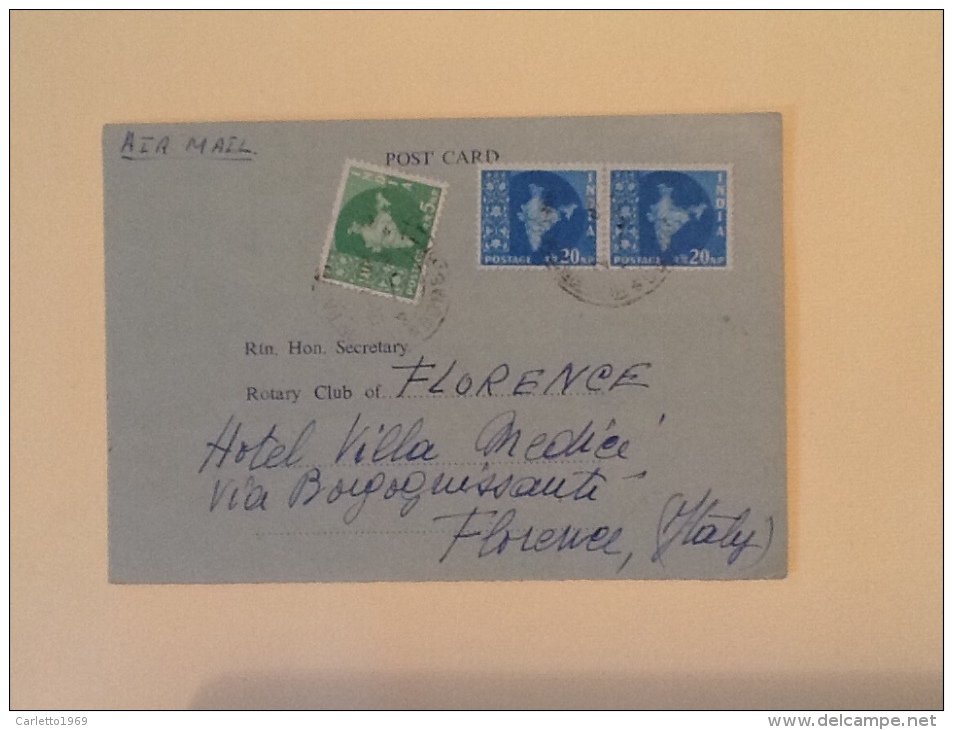 AIR MAIL.
POST CARD
INDIA
5
POSTAGE
INDIA
POSTAGE 20 NP
INDIA
POSTAGE 20 NP
Rtn. Hon. Secretary.
Rotary Club of FLORENCE
Hotel Villa Medici
Via Borgognissanti
Florence, (Italy)
Carletto1969
www.delcampe.net